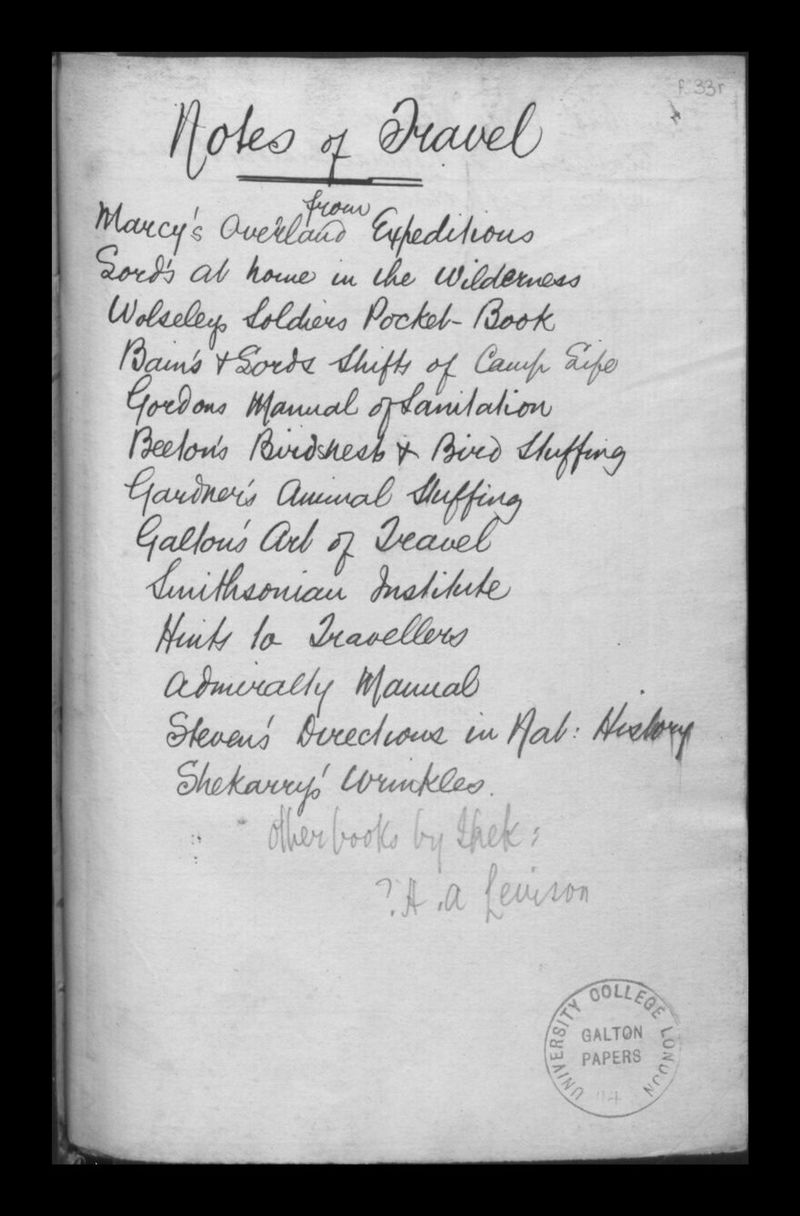 f. 33r
Notes of Travel
from
Marcy's Overland Expeditions
Lord's at home in the Wilderness
Wolseleys Soldiers Pocket-Book
Bain's & Lords Shifts of Camp Life
Gordons Manual of Sanitation
Beeton's Birdsnests & Bird Stuffing
Gardner's Animal Stuffing
Galton's Art of Travel
Smithsonian Institute
Hints to Travellers
Admiralty Manual
Steven's Directions in Nat: History
Shekarry's Wrinkles.
Other books by Shek:
?H.A Levison
UNIVERSITY COLLEGE LONDON
GALTON
PAPERS